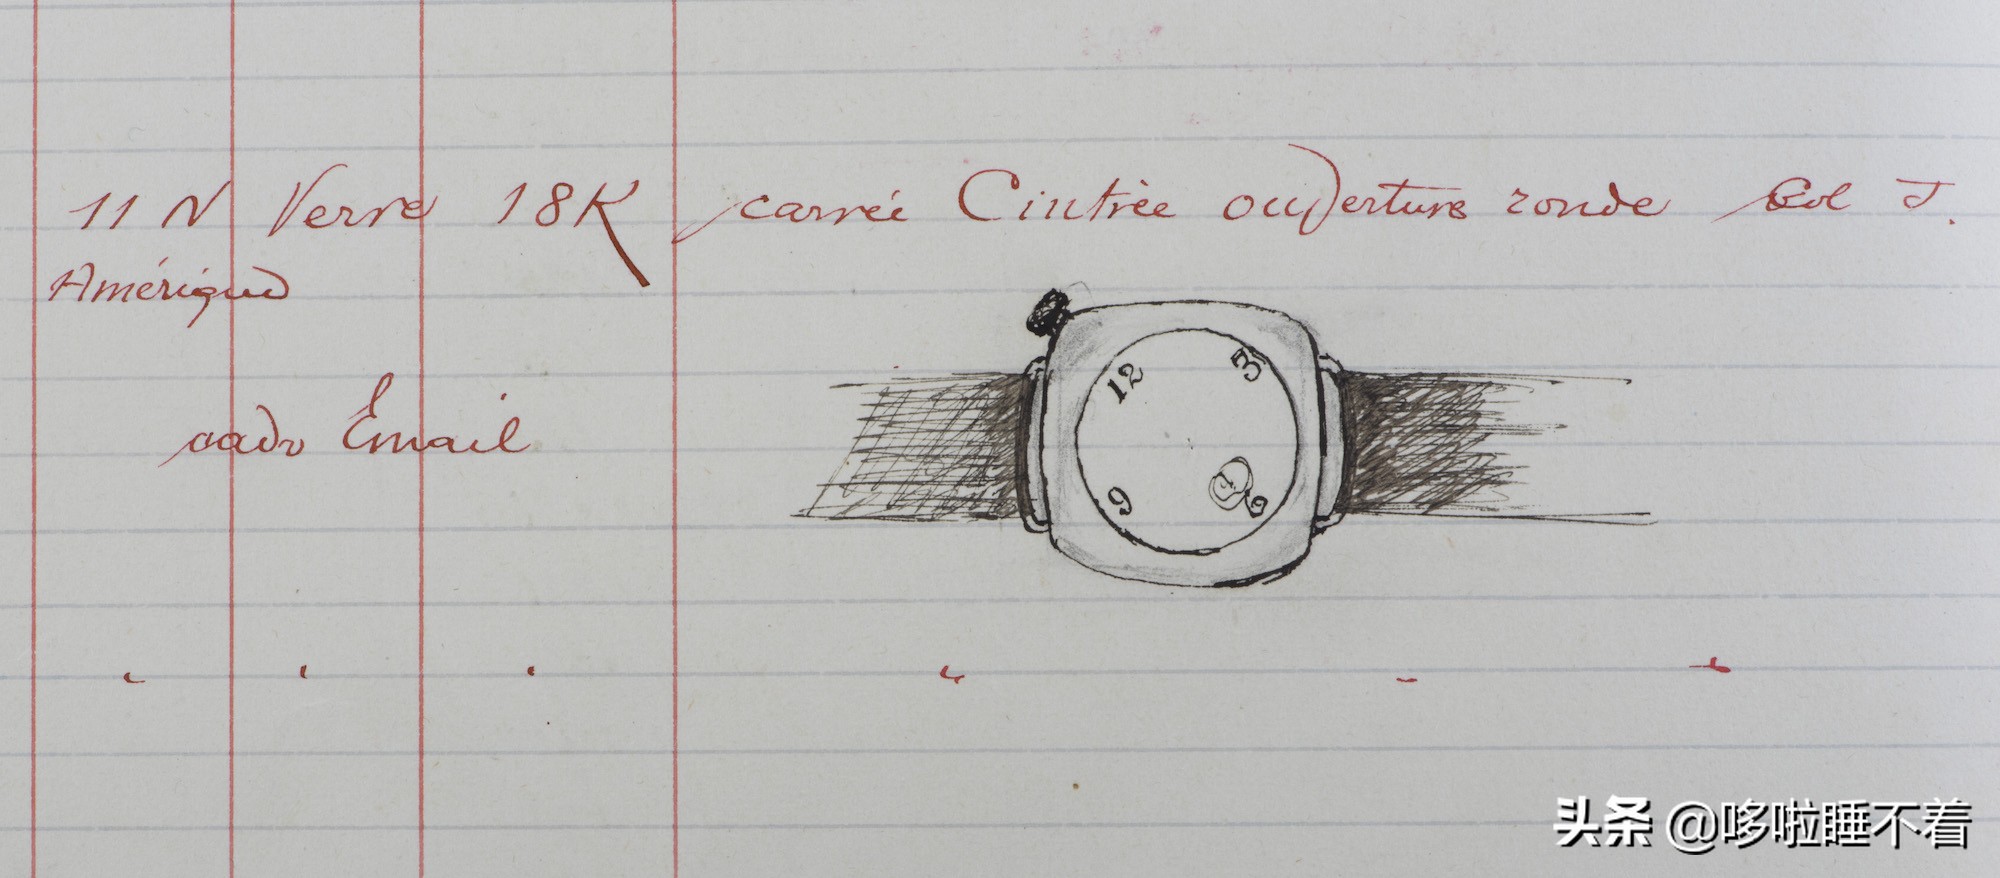 11 N Verre 18K carrée Cintrée ouverture ronde Col J.
Amérique
cadr Email
12 3
9 6
头条 @哆啦睡不着